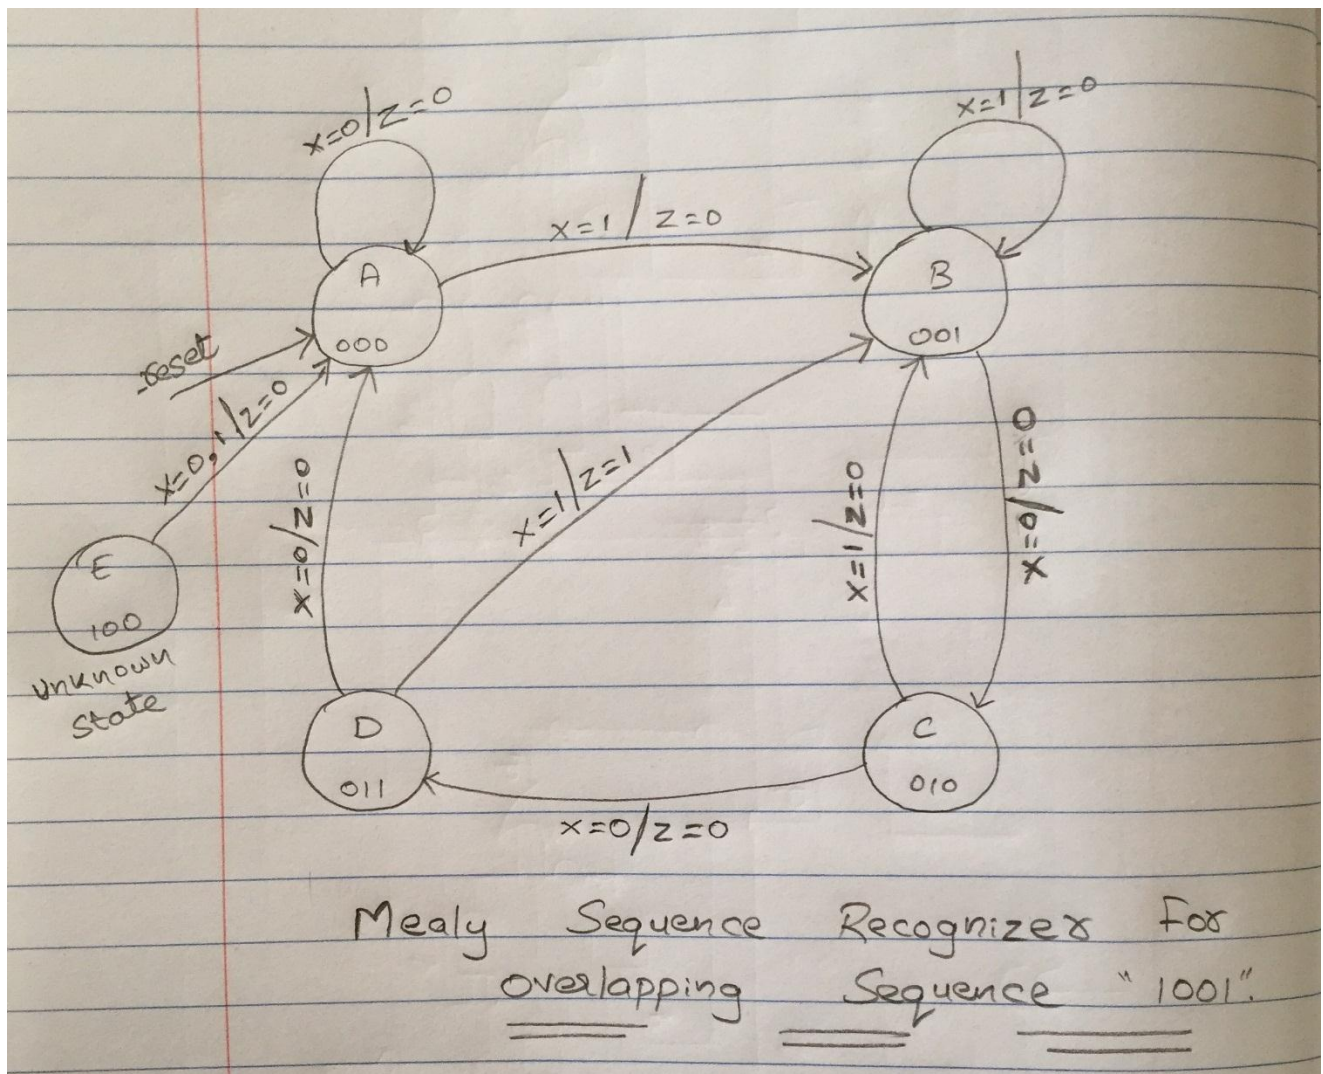 x=0/z=0
x=1/z=0
x=1/z=0
A
000
B
001
reset
x=0,1/z=0
x=0/z=0
x=1/z=1
x=1/z=0
x=0/z=0
E
100
unknown
state
D
011
C
010
x=0/z=0
Mealy Sequence Recognizer For
overlapping Sequence "1001".